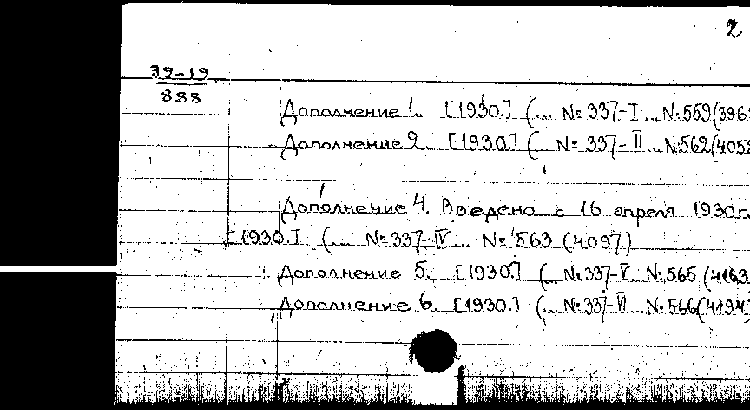 2
39-19
888
Дополнение 1. [1930.] (... № 337-I ... № 559 (396
Дополнение 2. [1930.] (... № 337-II ... № 562 (405
Дополнение 4. Введено с 16 апреля 1930г.
[1930.] (... № 337-IV ... № 563 (4097)
Дополнение 5. [1930.] (... № 337-V № 565 (4163
Дополнение 6. [1930.] (... № 337-VI № 566 (4194